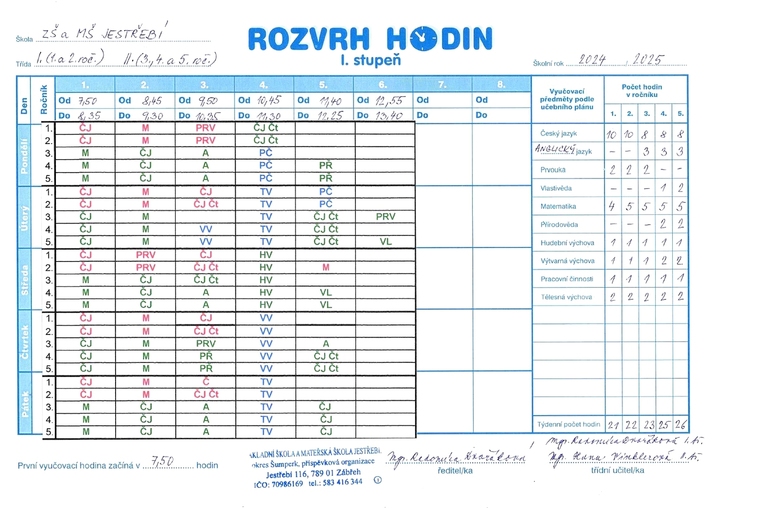 Škola ZŠ a MŠ JESTŘEBÍ
ROZVRH HODIN
I. stupeň
Třída I. (1. a 2. roč.) II. (3., 4. a 5. roč.)
Školní rok 2024 2025
Den Ročník 1. 2. 3. 4. 5. 6. 7. 8.
Od 7,50 Od 8,45 Od 9,50 Od 10,45 Od 11,40 Od 12,55 Od Od
Do 8,35 Do 9,30 Do 10,35 Do 11,30 Do 12,25 Do 13,40 Do Do
Pondělí
1. ČJ M PRV ČJ Čt
2. ČJ M PRV ČJ Čt
3. M ČJ A PČ
4. M ČJ A PČ PŘ
5. M ČJ A PČ PŘ
Úterý
1. ČJ M ČJ TV PČ
2. ČJ M ČJ Čt TV PČ
3. ČJ M TV ČJ Čt PRV
4. ČJ M VV TV ČJ Čt
5. ČJ M VV TV ČJ Čt VL
Středa
1. ČJ PRV ČJ HV
2. ČJ PRV ČJ Čt HV M
3. M ČJ ČJ Čt HV
4. M ČJ A HV VL
5. M ČJ A HV VL
Čtvrtek
1. ČJ M ČJ VV
2. ČJ M ČJ Čt VV
3. ČJ M PRV VV A
4. ČJ M PŘ VV ČJ Čt
5. ČJ M PŘ VV ČJ Čt
Pátek
1. ČJ M Č TV
2. ČJ M ČJ Čt TV
3. M ČJ A TV ČJ
4. M ČJ A TV ČJ
5. M ČJ A TV ČJ
Vyučovací předměty podle učebního plánu
Počet hodin v ročníku
1. 2. 3. 4. 5.
Český jazyk 10 10 8 8 8
ANGLICKÝ jazyk - - 3 3 3
Prvouka 2 2 2 - -
Vlastivěda - - - 1 2
Matematika 4 5 5 5 5
Přírodověda - - - 2 2
Hudební výchova 1 1 1 1 1
Výtvarná výchova 1 1 1 2 2
Pracovní činnosti 1 1 1 1 1
Tělesná výchova 2 2 2 2 2
Týdenní počet hodin 21 22 23 25 26
První vyučovací hodina začíná v 7,50 hodin
ZÁKLADNÍ ŠKOLA A MATEŘSKÁ ŠKOLA JESTŘEBÍ
okres Šumperk, příspěvková organizace
Jestřebí 116, 789 01 Zábřeh
IČO: 70986169 tel.: 583 416 344
Mgr. Radomíra Dvořáková
ředitel/ka
Mgr. Radomíra Dvořáková
Mgr. Hana Winklerová
třídní učitel/ka